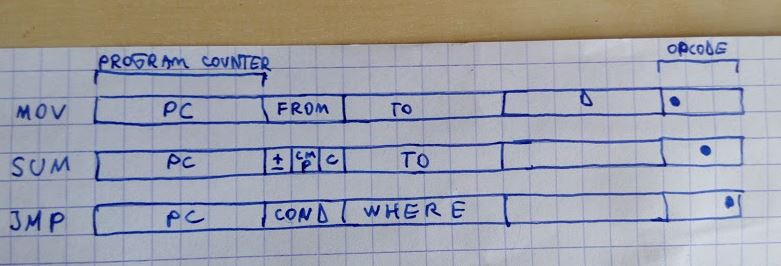 PROGRAM COUNTER OPCODE
MOV PC FROM TO D
SUM PC ± CMP C TO
JMP PC COND WHERE